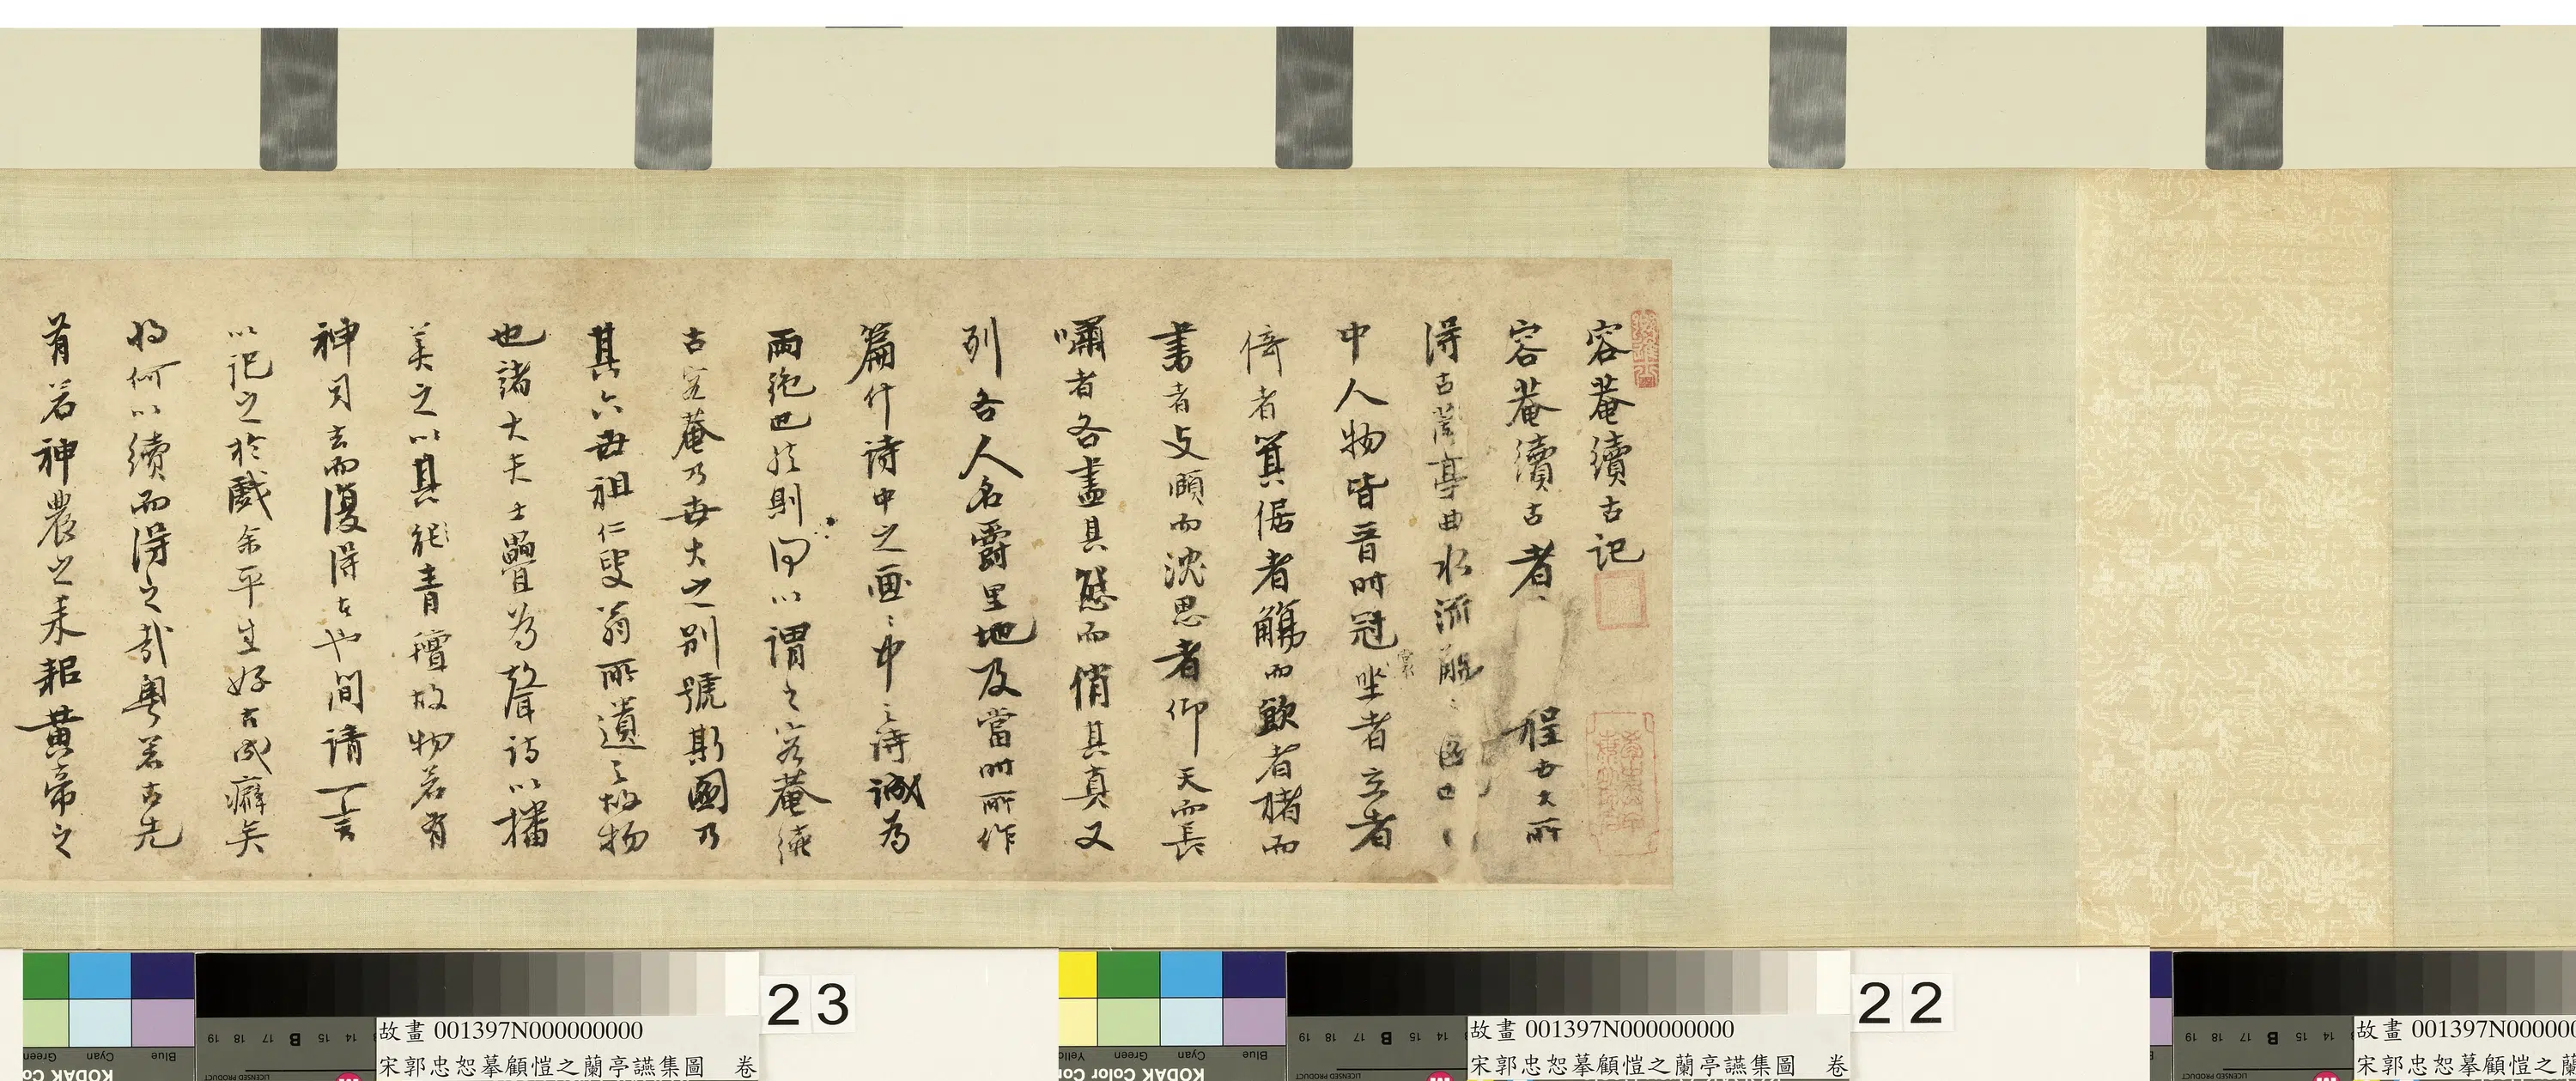 容菴續古記
容菴續古者 程世大所
得古蘭亭曲水流觴
中人物皆晉時冠坐者立者
倚者箕倨者觴而飲者楮而
書者与頤而沈思者仰天而長
嘯者各盡其態而俏其真又
列各人名爵里地及當時所作
篇什詩中之画〻中之詩誠為
兩絶也然則何以謂之容菴續
古容菴乃世大之別號斯圖乃
其六世祖仁叟翁所遺之故物
也諸大夫士疊為聲詩以播
美之以其能青氊故物若有
神司去而復得古也間請一言
以記之於戲余平生好古成癖矣
将何以續而得之哉粤若古先
有若神農之耒耜黃帝之
23
22
故畫 001397N000000000
宋郭忠恕摹顧愷之蘭亭讌集圖 卷
故畫 001397N000000000
宋郭忠恕摹顧愷之蘭亭讌集圖 卷
故畫 001397N00000
宋郭忠恕摹顧愷之蘭
Green Cyan Blue
KODAK Co
19 18 17 B 15 14
LICENSED PRODUCT
Green Cyan Blue
KODAK Color Con
19 18 17 B 15 14
LICENSED PRODUCT
19 18 17 B 15 14
LICENSED PRODUCT